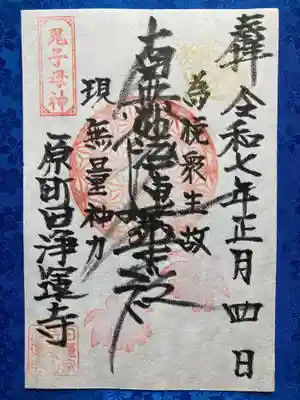 奉拝
令和七年正月四日
為悦衆生故
南無妙法蓮華経
現無量神力
鬼子母神
原町田浄運寺